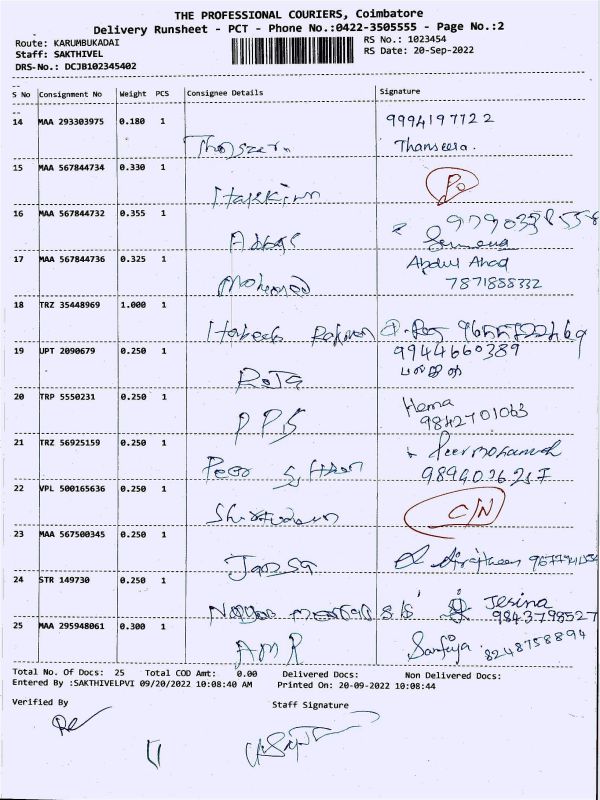 THE PROFESSIONAL COURIERS, Coimbatore
Delivery Runsheet - PCT - Phone No.:0422-3505555 - Page No.:2
Route: KARUMBUKADAI RS No.: 1023454
Staff: SAKTHIVEL RS Date: 20-Sep-2022
DRS-No.: DCJB102345402
S No Consignment No Weight PCS Consignee Details Signature
14 MAA 293303975 0.180 1 9994197722
Thanseera.
15 MAA 567844734 0.330 1
16 MAA 567844732 0.355 1
Abbas
17 MAA 567844736 0.325 1 Abdul Ahad
Mohamed 7871858332
18 TRZ 35448969 1.000 1
19 UPT 2090679 0.250 1 9944660389
Roja
20 TRP 5550231 0.250 1 Hema
PPS 9842701063
21 TRZ 56925159 0.250 1 Peermohamed
Peer
22 VPL 500165636 0.250 1
C/N
23 MAA 567500345 0.250 1
24 STR 149730 0.250 1 Jesina
9843798527
25 MAA 295948061 0.300 1
AMR 8248758894
Total No. Of Docs: 25 Total COD Amt: 0.00 Delivered Docs: Non Delivered Docs:
Entered By :SAKTHIVELPVI 09/20/2022 10:08:40 AM Printed On: 20-09-2022 10:08:44
Verified By Staff Signature